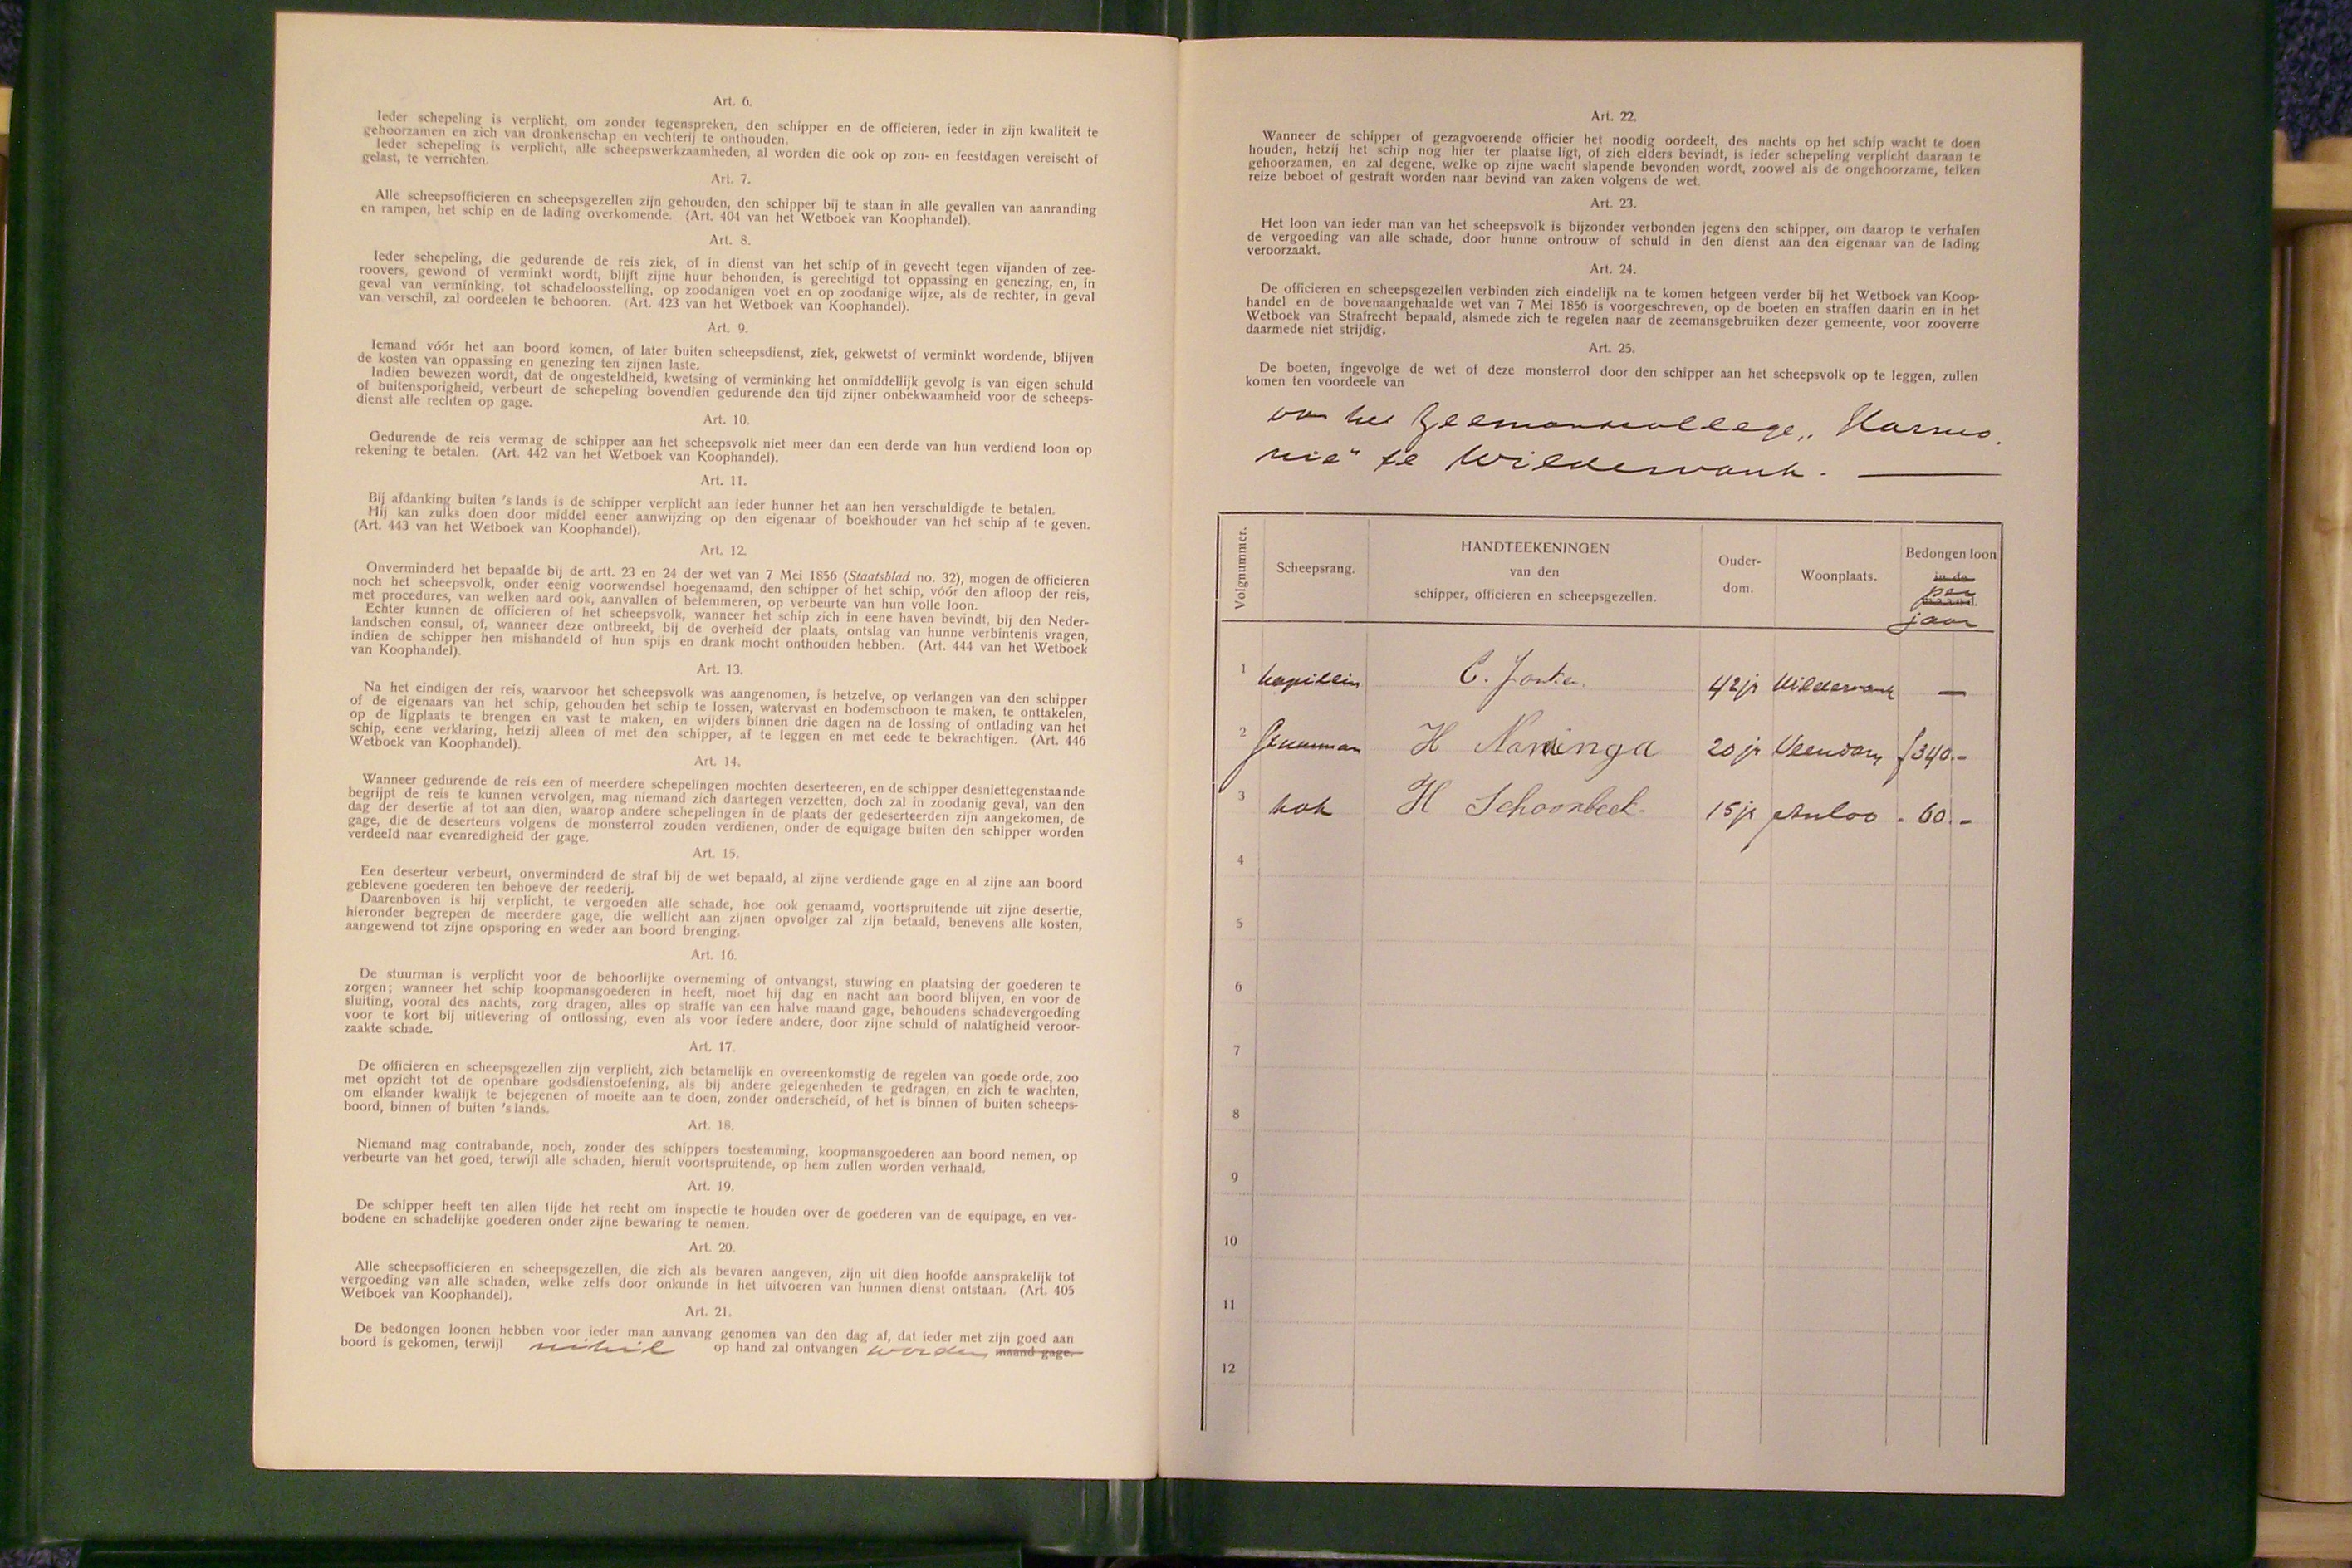 Art. 6.
Ieder schepeling is verplicht, om zonder tegenspreken, den schipper en de officieren, ieder in zijn kwaliteit te
gehoorzamen en zich van dronkenschap en vechterij te onthouden.
Ieder schepeling is verplicht, alle scheepswerkzaamheden, al worden die ook op zon- en feestdagen vereischt of
gelast, te verrichten.
Art. 7.
Alle scheepsofficieren en scheepsgezellen zijn gehouden, den schipper bij te staan in alle gevallen van aanranding
en rampen, het schip en de lading overkomende. (Art. 404 van het Wetboek van Koophandel).
Art. 8.
Ieder schepeling, die gedurende de reis ziek, of in dienst van het schip of in gevecht tegen vijanden of zee-
roovers, gewond of verminkt wordt, blijft zijne huur behouden, is gerechtigd tot oppassing en genezing, en, in
geval van verminking, tot schadeloosstelling, op zoodanigen voet en op zoodanige wijze, als de rechter, in geval
van verschil, zal oordeelen te behooren. (Art. 423 van het Wetboek van Koophandel).
Art. 9.
Iemand vóór het aan boord komen, of later buiten scheepsdienst, ziek, gekwetst of verminkt wordende, blijven
de kosten van oppassing en genezing ten zijnen laste.
Indien bewezen wordt, dat de ongesteldheid, kwetsing of verminking het onmiddellijk gevolg is van eigen schuld
of buitensporigheid, verbeurt de schepeling bovendien gedurende den tijd zijner onbekwaamheid voor de scheeps-
dienst alle rechten op gage.
Art. 10.
Gedurende de reis vermag de schipper aan het scheepsvolk niet meer dan een derde van hun verdiend loon op
rekening te betalen. (Art. 442 van het Wetboek van Koophandel).
Art. 11.
Bij afdanking buiten 's lands is de schipper verplicht aan ieder hunner het aan hen verschuldigde te betalen.
Hij kan zulks doen door middel eener aanwijzing op den eigenaar of boekhouder van het schip af te geven.
(Art. 443 van het Wetboek van Koophandel).
Art. 12.
Onverminderd het bepaalde bij de artt. 23 en 24 der wet van 7 Mei 1856 (Staatsblad no. 32), mogen de officieren
noch het scheepsvolk, onder eenig voorwendsel hoegenaamd, den schipper of het schip, vóór den afloop der reis,
met procedures, van welken aard ook, aanvallen of belemmeren, op verbeurte van hun volle loon.
Echter kunnen de officieren of het scheepsvolk, wanneer het schip zich in eene haven bevindt, bij den Neder-
landschen consul, of, wanneer deze ontbreekt, bij de overheid der plaats, ontslag van hunne verbintenis vragen,
indien de schipper hen mishandeld of hun spijs en drank mocht onthouden hebben. (Art. 444 van het Wetboek
van Koophandel).
Art. 13.
Na het eindigen der reis, waarvoor het scheepsvolk was aangenomen, is hetzelve, op verlangen van den schipper
of de eigenaars van het schip, gehouden het schip te lossen, watervast en bodemschoon te maken, te onttakelen,
op de ligplaats te brengen en vast te maken, en wijders binnen drie dagen na de lossing of ontlading van het
schip, eene verklaring, hetzij alleen of met den schipper, af te leggen en met eede te bekrachtigen. (Art. 446
Wetboek van Koophandel).
Art. 14.
Wanneer gedurende de reis een of meerdere schepelingen mochten deserteeren, en de schipper desniettegenstaande
begrijpt de reis te kunnen vervolgen, mag niemand zich daartegen verzetten, doch zal in zoodanig geval, van den
dag der desertie af tot aan dien, waarop andere schepelingen in de plaats der gedeserteerden zijn aangekomen, de
gage, die de deserteurs volgens de monsterrol zouden verdienen, onder de equigage buiten den schipper worden
verdeeld naar evenredigheid der gage.
Art. 15.
Een deserteur verbeurt, onverminderd de straf bij de wet bepaald, al zijne verdiende gage en al zijne aan boord
geblevene goederen ten behoeve der reederij.
Daarenboven is hij verplicht, te vergoeden alle schade, hoe ook genaamd, voortspruitende uit zijne desertie,
hieronder begrepen de meerdere gage, die wellicht aan zijnen opvolger zal zijn betaald, benevens alle kosten,
aangewend tot zijne opsporing en weder aan boord brenging.
Art. 16.
De stuurman is verplicht voor de behoorlijke overneming of ontvangst, stuwing en plaatsing der goederen te
zorgen; wanneer het schip koopmansgoederen in heeft, moet hij dag en nacht aan boord blijven, en voor de
sluiting, vooral des nachts, zorg dragen, alles op straffe van een halve maand gage, behoudens schadevergoeding
voor te kort bij uitlevering of ontlossing, even als voor iedere andere, door zijne schuld of nalatigheid veroor-
zaakte schade.
Art. 17.
De officieren en scheepsgezellen zijn verplicht, zich betamelijk en overeenkomstig de regelen van goede orde, zoo
met opzicht tot de openbare godsdienstoefening, als bij andere gelegenheden te gedragen, en zich te wachten,
om elkander kwalijk te bejegenen of moeite aan te doen, zonder onderscheid, of het is binnen of buiten scheeps-
boord, binnen of buiten 's lands.
Art. 18.
Niemand mag contrabande, noch, zonder des schippers toestemming, koopmansgoederen aan boord nemen, op
verbeurte van het goed, terwijl alle schaden, hieruit voortspruitende, op hem zullen worden verhaald.
Art. 19.
De schipper heeft ten allen tijde het recht om inspectie te houden over de goederen van de equipage, en ver-
bodene en schadelijke goederen onder zijne bewaring te nemen.
Art. 20.
Alle scheepsofficieren en scheepsgezellen, die zich als bevaren aangeven, zijn uit dien hoofde aansprakelijk tot
vergoeding van alle schaden, welke zelfs door onkunde in het uitvoeren van hunnen dienst ontstaan. (Art. 405
Wetboek van Koophandel).
Art. 21.
De bedongen loonen hebben voor ieder man aanvang genomen van den dag af, dat ieder met zijn goed aan
boord is gekomen, terwijl nihil op hand zal ontvangen worden maand gage.
Art. 22.
Wanneer de schipper of gezagvoerende officier het noodig oordeelt, des nachts op het schip wacht te doen
houden, hetzij het schip nog hier ter plaatse ligt, of zich elders bevindt, is ieder schepeling verplicht daaraan te
gehoorzamen, en zal degene, welke op zijne wacht slapende bevonden wordt, zoowel als de ongehoorzame, telken
reize beboet of gestraft worden naar bevind van zaken volgens de wet.
Art. 23.
Het loon van ieder man van het scheepsvolk is bijzonder verbonden jegens den schipper, om daarop te verhalen
de vergoeding van alle schade, door hunne ontrouw of schuld in den dienst aan den eigenaar van de lading
veroorzaakt.
Art. 24.
De officieren en scheepsgezellen verbinden zich eindelijk na te komen hetgeen verder bij het Wetboek van Koop-
handel en de bovenaangehaalde wet van 7 Mei 1856 is voorgeschreven, op de boeten en straffen daarin en in het
Wetboek van Strafrecht bepaald, alsmede zich te regelen naar de zeemansgebruiken dezer gemeente, voor zooverre
daarmede niet strijdig.
Art. 25.
De boeten, ingevolge de wet of deze monsterrol door den schipper aan het scheepsvolk op te leggen, zullen
komen ten voordeele van
van het Zeemanscollege „Harmo.
nie" te Wildervank.
Volgnummer. Scheepsrang. HANDTEEKENINGEN van den schipper, officieren en scheepsgezellen. Ouder-dom. Woonplaats. Bedongen loon in de maand. per jaar
1 kapitein C. 42 jr Wildervank —
2 Stuurman H Naninga 20 jr Veendam f 340.-
3 kok H Schoonbeek 15 jr Anloo „ 60.-
4
5
6
7
8
9
10
11
12